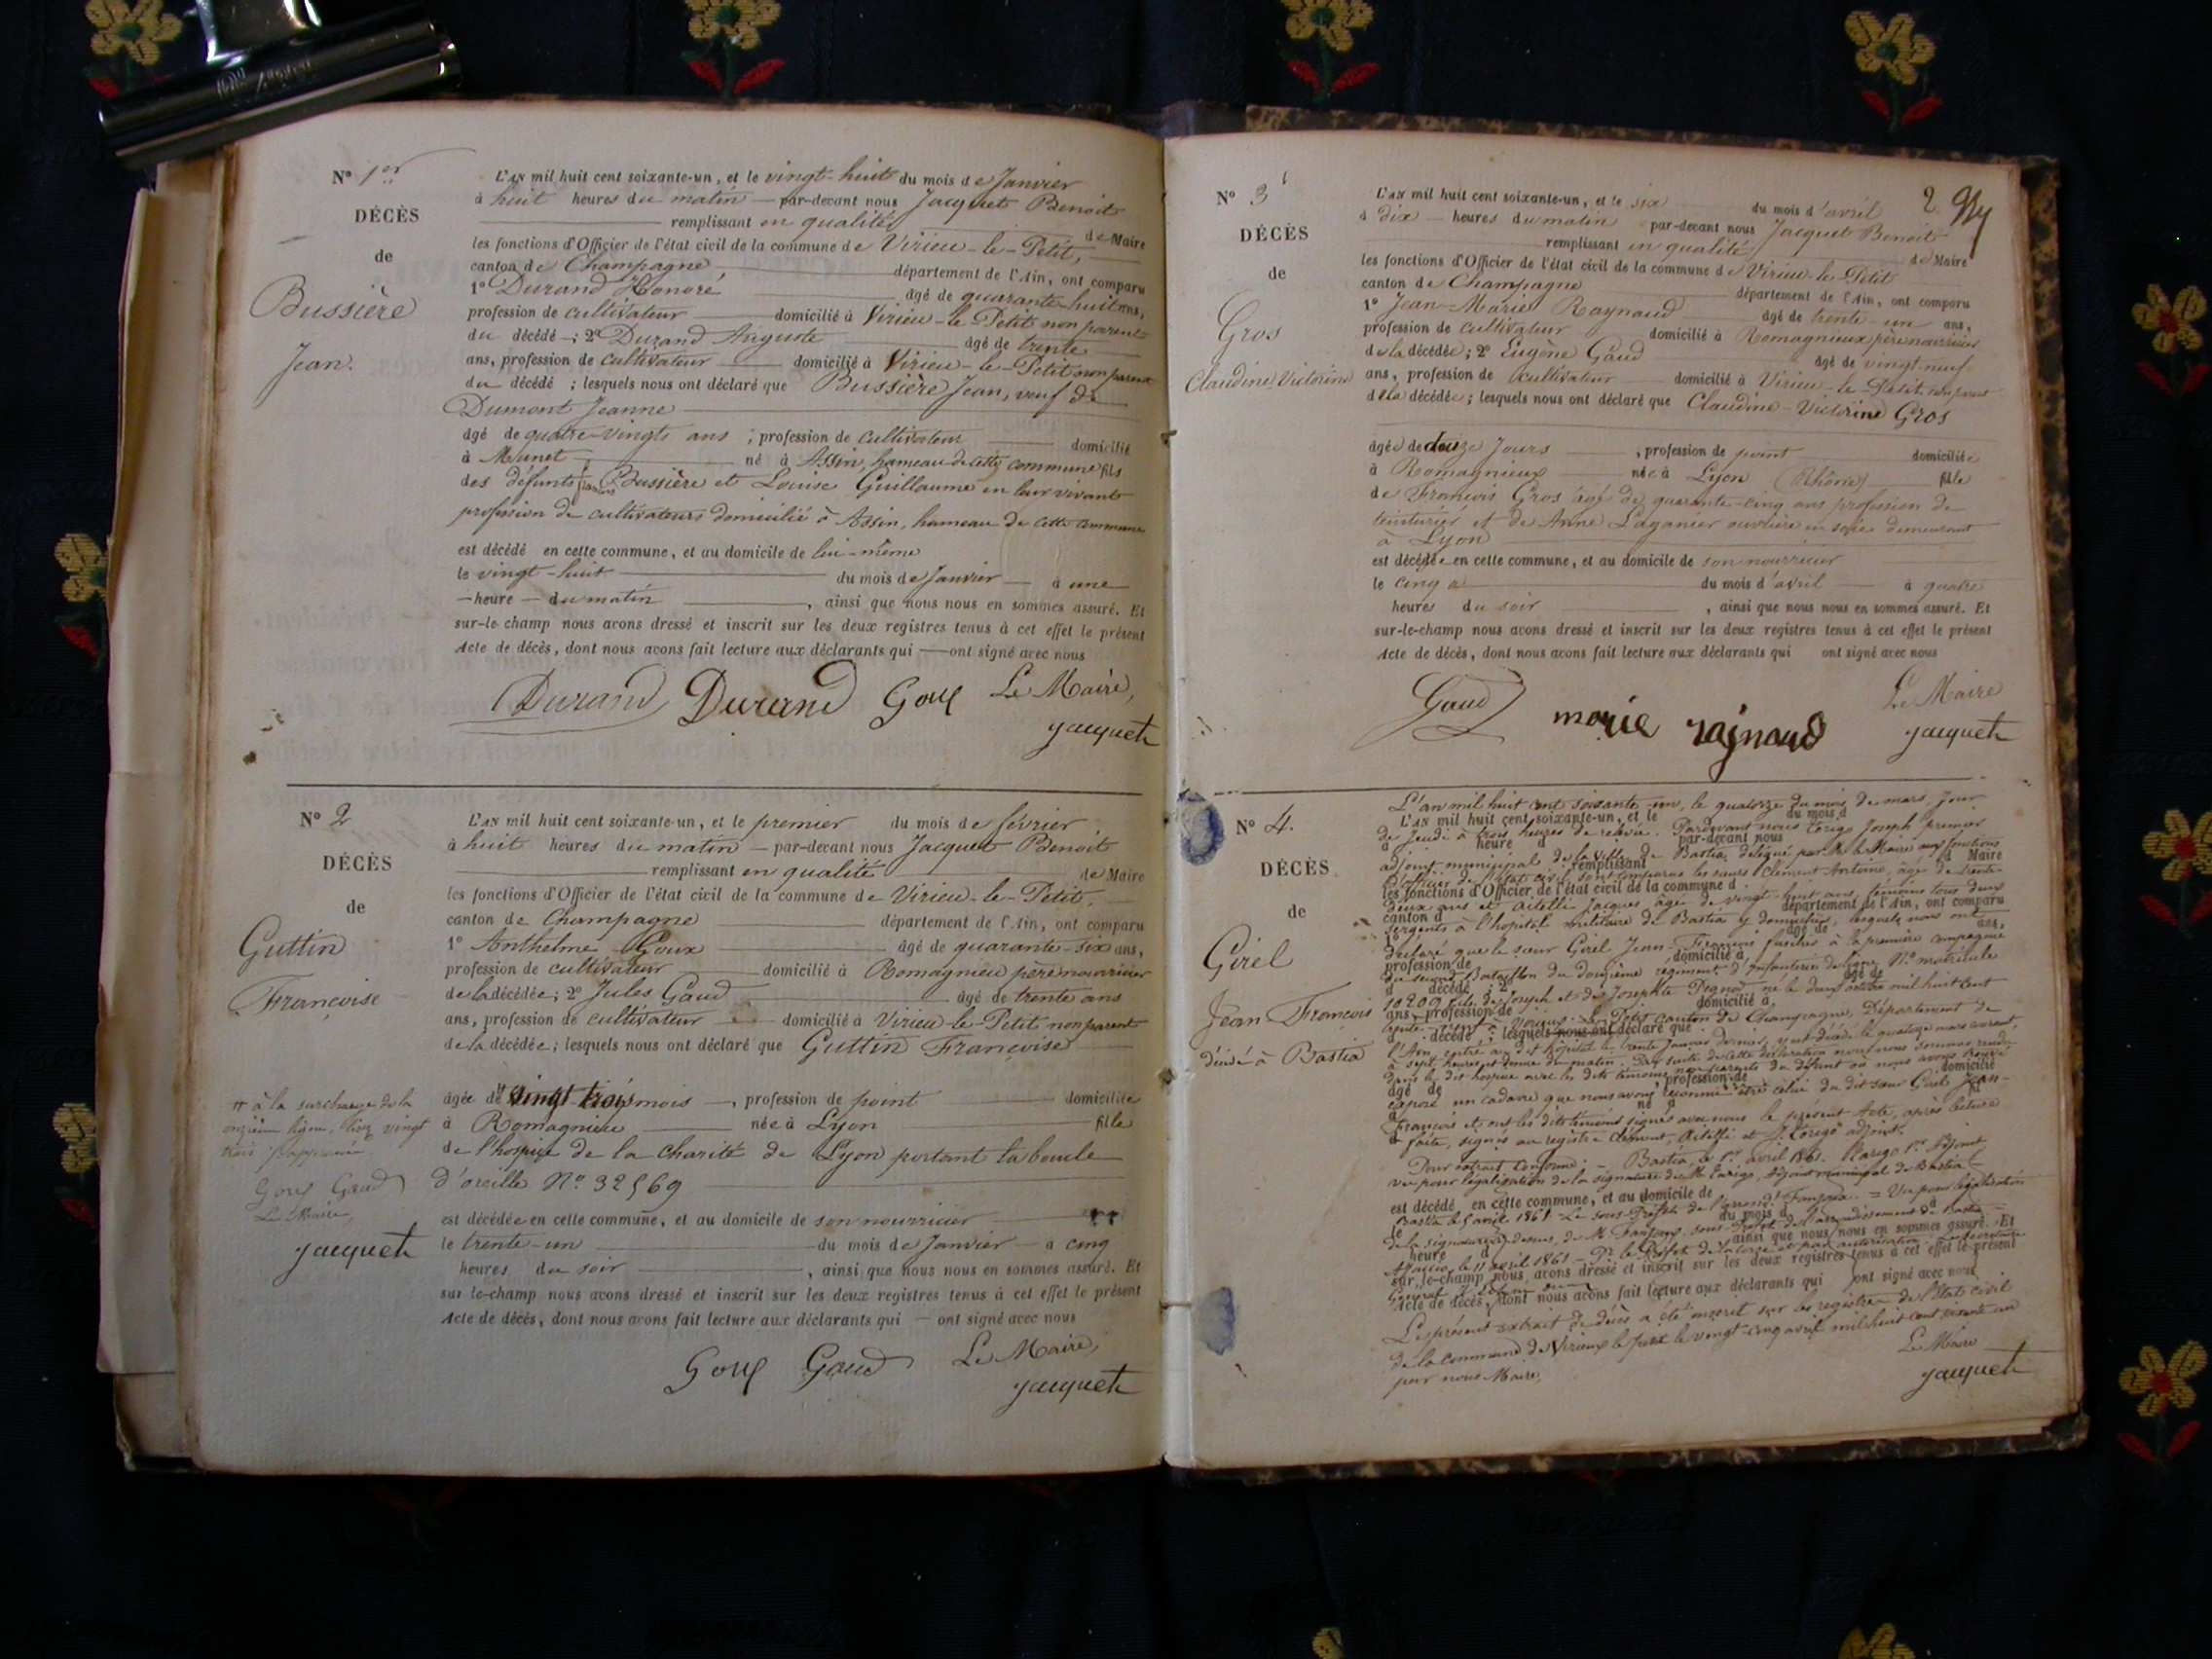 N° 1er
DÉCÈS
de
Bussière
Jean.
L'AN mil huit cent soixante-un, et le vingt-huit du mois de Janvier
à huit heures du matin par-devant nous Jacquet Benoit
remplissant en qualité de Maire
les fonctions d'Officier de l'état civil de la commune de Virieu-le-Petit,
canton de Champagne, département de l'Ain, ont comparu
1° Durand Honoré âgé de quarante-huit ans,
profession de cultivateur domicilié à Virieu-le-Petit non parent
du décédé; 2° Durand Auguste âgé de trente
ans, profession de cultivateur domicilié à Virieu-le-Petit non parent
du décédé; lesquels nous ont déclaré que Bussière Jean, veuf de
Dumont Jeanne
âgé de quatre-vingts ans; profession de cultivateur domicilié
à Munet, né à Assin, hameau de cette commune fils
des défunts Bussière et Louise Guillaume en leur vivant
profession de cultivateurs domicilié à Assin, hameau de cette commune
est décédé en cette commune, et au domicile de lui-même
le vingt-huit du mois de Janvier à une
heure du matin, ainsi que nous nous en sommes assuré. Et
sur-le-champ nous avons dressé et inscrit sur les deux registres tenus à cet effet le présent
Acte de décès, dont nous avons fait lecture aux déclarants qui ont signé avec nous
Durand Durand Goux Le Maire,
Jacquet
N° 2
DÉCÈS
de
Guttin
Françoise
à la surcharge de la
onzième ligne, lisez vingt
trois
Goux Gaud
Le Maire,
Jacquet
L'AN mil huit cent soixante-un, et le premier du mois de février
à huit heures du matin par-devant nous Jacquet Benoit
remplissant en qualité de Maire
les fonctions d'Officier de l'état civil de la commune de Virieu-le-Petit,
canton de Champagne département de l'Ain, ont comparu
1° Anthelme Goux âgé de quarante-six ans,
profession de cultivateur domicilié à Romagnieu père nourricier
de la décédée; 2° Jules Gaud âgé de trente ans
ans, profession de cultivateur domicilié à Virieu-le-Petit non parent
de la décédée; lesquels nous ont déclaré que Guttin Françoise
âgée de vingt-trois mois, profession de point domiciliée
à Romagnieu née à Lyon fille
de l'hospice de la charité de Lyon portant la boucle
d'oreille N° 32569
est décédée en cette commune, et au domicile de son nourricier
le trente-un du mois de Janvier à cinq
heures du soir, ainsi que nous nous en sommes assuré. Et
sur le-champ nous avons dressé et inscrit sur les deux registres tenus à cet effet le présent
Acte de décès, dont nous avons fait lecture aux déclarants qui ont signé avec nous
Goux Gaud Le Maire,
Jacquet
2
N° 3
DÉCÈS
de
Gros
Claudine Victorine
L'AN mil huit cent soixante-un, et le six du mois d'avril
à dix heures du matin par-devant nous Jacquet Benoit
remplissant en qualité de Maire
les fonctions d'Officier de l'état civil de la commune de Virieu-le-Petit
canton de Champagne département de l'Ain, ont comparu
1° Jean-Marie Raynaud âgé de trente-un ans,
profession de cultivateur domicilié à Romagnieux père nourricier
de la décédée; 2° Eugène Gaud âgé de vingt-neuf
ans, profession de cultivateur domicilié à Virieu-le-Petit, non parent
de la décédée; lesquels nous ont déclaré que Claudine-Victorine Gros
âgée de douze jours, profession de point domiciliée
à Romagnieux née à Lyon (Rhône) fille
de François Gros âgé de quarante-cinq ans profession de
teinturier et de Anne Laganier ouvrière en soie demeurant
à Lyon
est décédée en cette commune, et au domicile de son nourricier
le cinq du mois d'avril à quatre
heures du soir, ainsi que nous nous en sommes assuré. Et
sur-le-champ nous avons dressé et inscrit sur les deux registres tenus à cet effet le présent
Acte de décès, dont nous avons fait lecture aux déclarants qui ont signé avec nous
Gaud marie rajnaud Le Maire
Jacquet
N° 4.
DÉCÈS
de
Girel
Jean François
décédé à Bastia
L'an mil huit cent soixante-un, le quatorze du mois de mars, jour
L'AN mil huit cent soixante-un, et le du mois d
de Jeudi à trois heures de relevée. Pardevant nous Torigo Joseph premier
à heure d par-devant nous
adjoint municipal de la ville de Bastia, délégué par M. le Maire aux fonctions
remplissant d Maire
d'officier de l'état civil, sont comparus les sieurs Clément Antoine, âgé de trente
les fonctions d'Officier de l'état civil de la commune d
deux ans et Aitelli Jacques âgé de vingt-huit ans, témoins tous deux
canton d département de l'Ain, ont comparu
sergents à l'hopital militaire de Bastia y domiciliés, lesquels nous ont
1° âgé de ans,
déclaré que le sieur Girel Jean-François fusilier à la première compagnie
profession de domicilié à
du second Bataillon du douzième régiment d'Infanterie de ligne N° matricule
d décédé; 2° âgé de
10209 fils de Joseph et de Josephte né le deux octobre mil huit cent
ans, profession de domicilié à
à Virieux-le-Petit canton de Champagne, Département de
d décédé; lesquels nous ont déclaré que
l'Ain, entré au dit hôpital le trente Janvier dernier, y est décédé le quatorze mars courant,
à sept heures et demie du matin. Par suite de cette déclaration nous nous sommes rendu
dans le dit hospice avec les dits témoins non parents du défunt où nous avons trouvé
âgé de, profession de domicilié
exposé un cadavre que nous avons reconnu être celui du dit sieur Girel Jean-
à né à
François et ont les dits témoins signés avec nous le présent Acte, après lecture
faite, signés au registre Clément, Aitelli et J. Torigo adjoint.
Pour extrait conforme: - Bastia, le 1er avril 1861.
vu pour légalisation de la signature de M. Torigo, Adjoint municipal de Bastia
est décédé en cette commune, et au domicile de
Bastia le 5 avril 1861 Le sous-Préfet de l'arrond. = Vu pour légalisation
le du mois d à
de la signature ci-dessus, de M. sous-Préfet de l'arrondissement de Bastia
heure d ainsi que nous nous en sommes assuré. Et
Ajaccio, le 11 avril 1861 - Pr. le Préfet de la Corse et par autorisation Le Secrétaire
sur-le-champ nous avons dressé et inscrit sur les deux registres tenus à cet effet le présent
Général
Acte de décès, dont nous avons fait lecture aux déclarants qui ont signé avec nous
Le présent extrait de décès a été inscrit sur les registres de l'état civil
de la commune de Virieux le Petit le vingt-cinq avril mil huit cent soixante un
par nous Maire, Le Maire
Jacquet